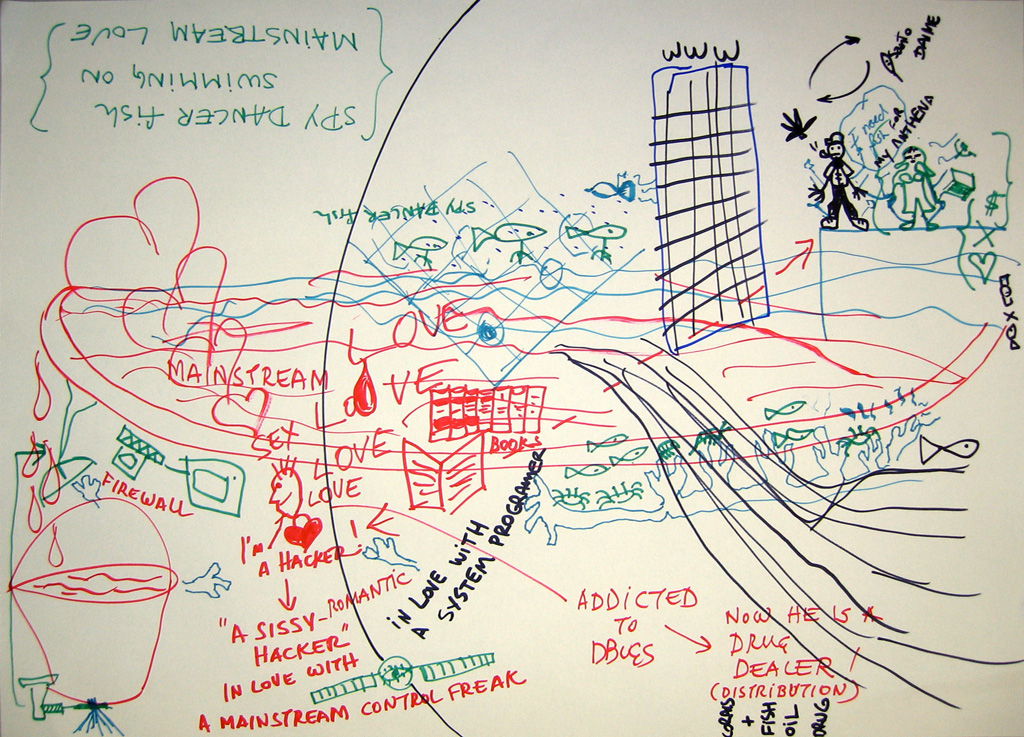 SPY DANCER fish
SWIMMING ON
MAINSTREAM LOVE
WWW
DAIME
I need
a fish FOR
MY ANTHENA
SPY DANCER fish
$
X
LOVE
MAINSTREAM
LOVE
SEX
LOVE
LOVE
BOOKS
FIREWALL
I'M
A HACKER!
"A SISSY-ROMANTIC
HACKER"
IN LOVE WITH
A MAINSTREAM CONTROL FREAK
IN LOVE WITH
A SYSTEM PROGRAMER
ADDICTED
TO
DBUGS
NOW HE IS A
DRUG
DEALER
(DISTRIBUTION)
+
FISH
OIL
DRUG